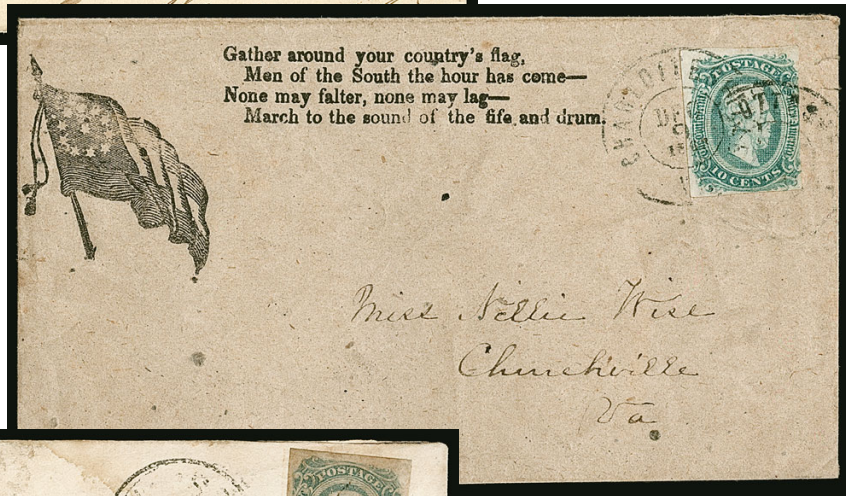 Gather around your country's flag,
Men of the South the hour has come—
None may falter, none may lag—
March to the sound of the fife and drum.
POSTAGE
10 CENTS
Miss Nellie Wise
Churchville
Va
POSTAGE